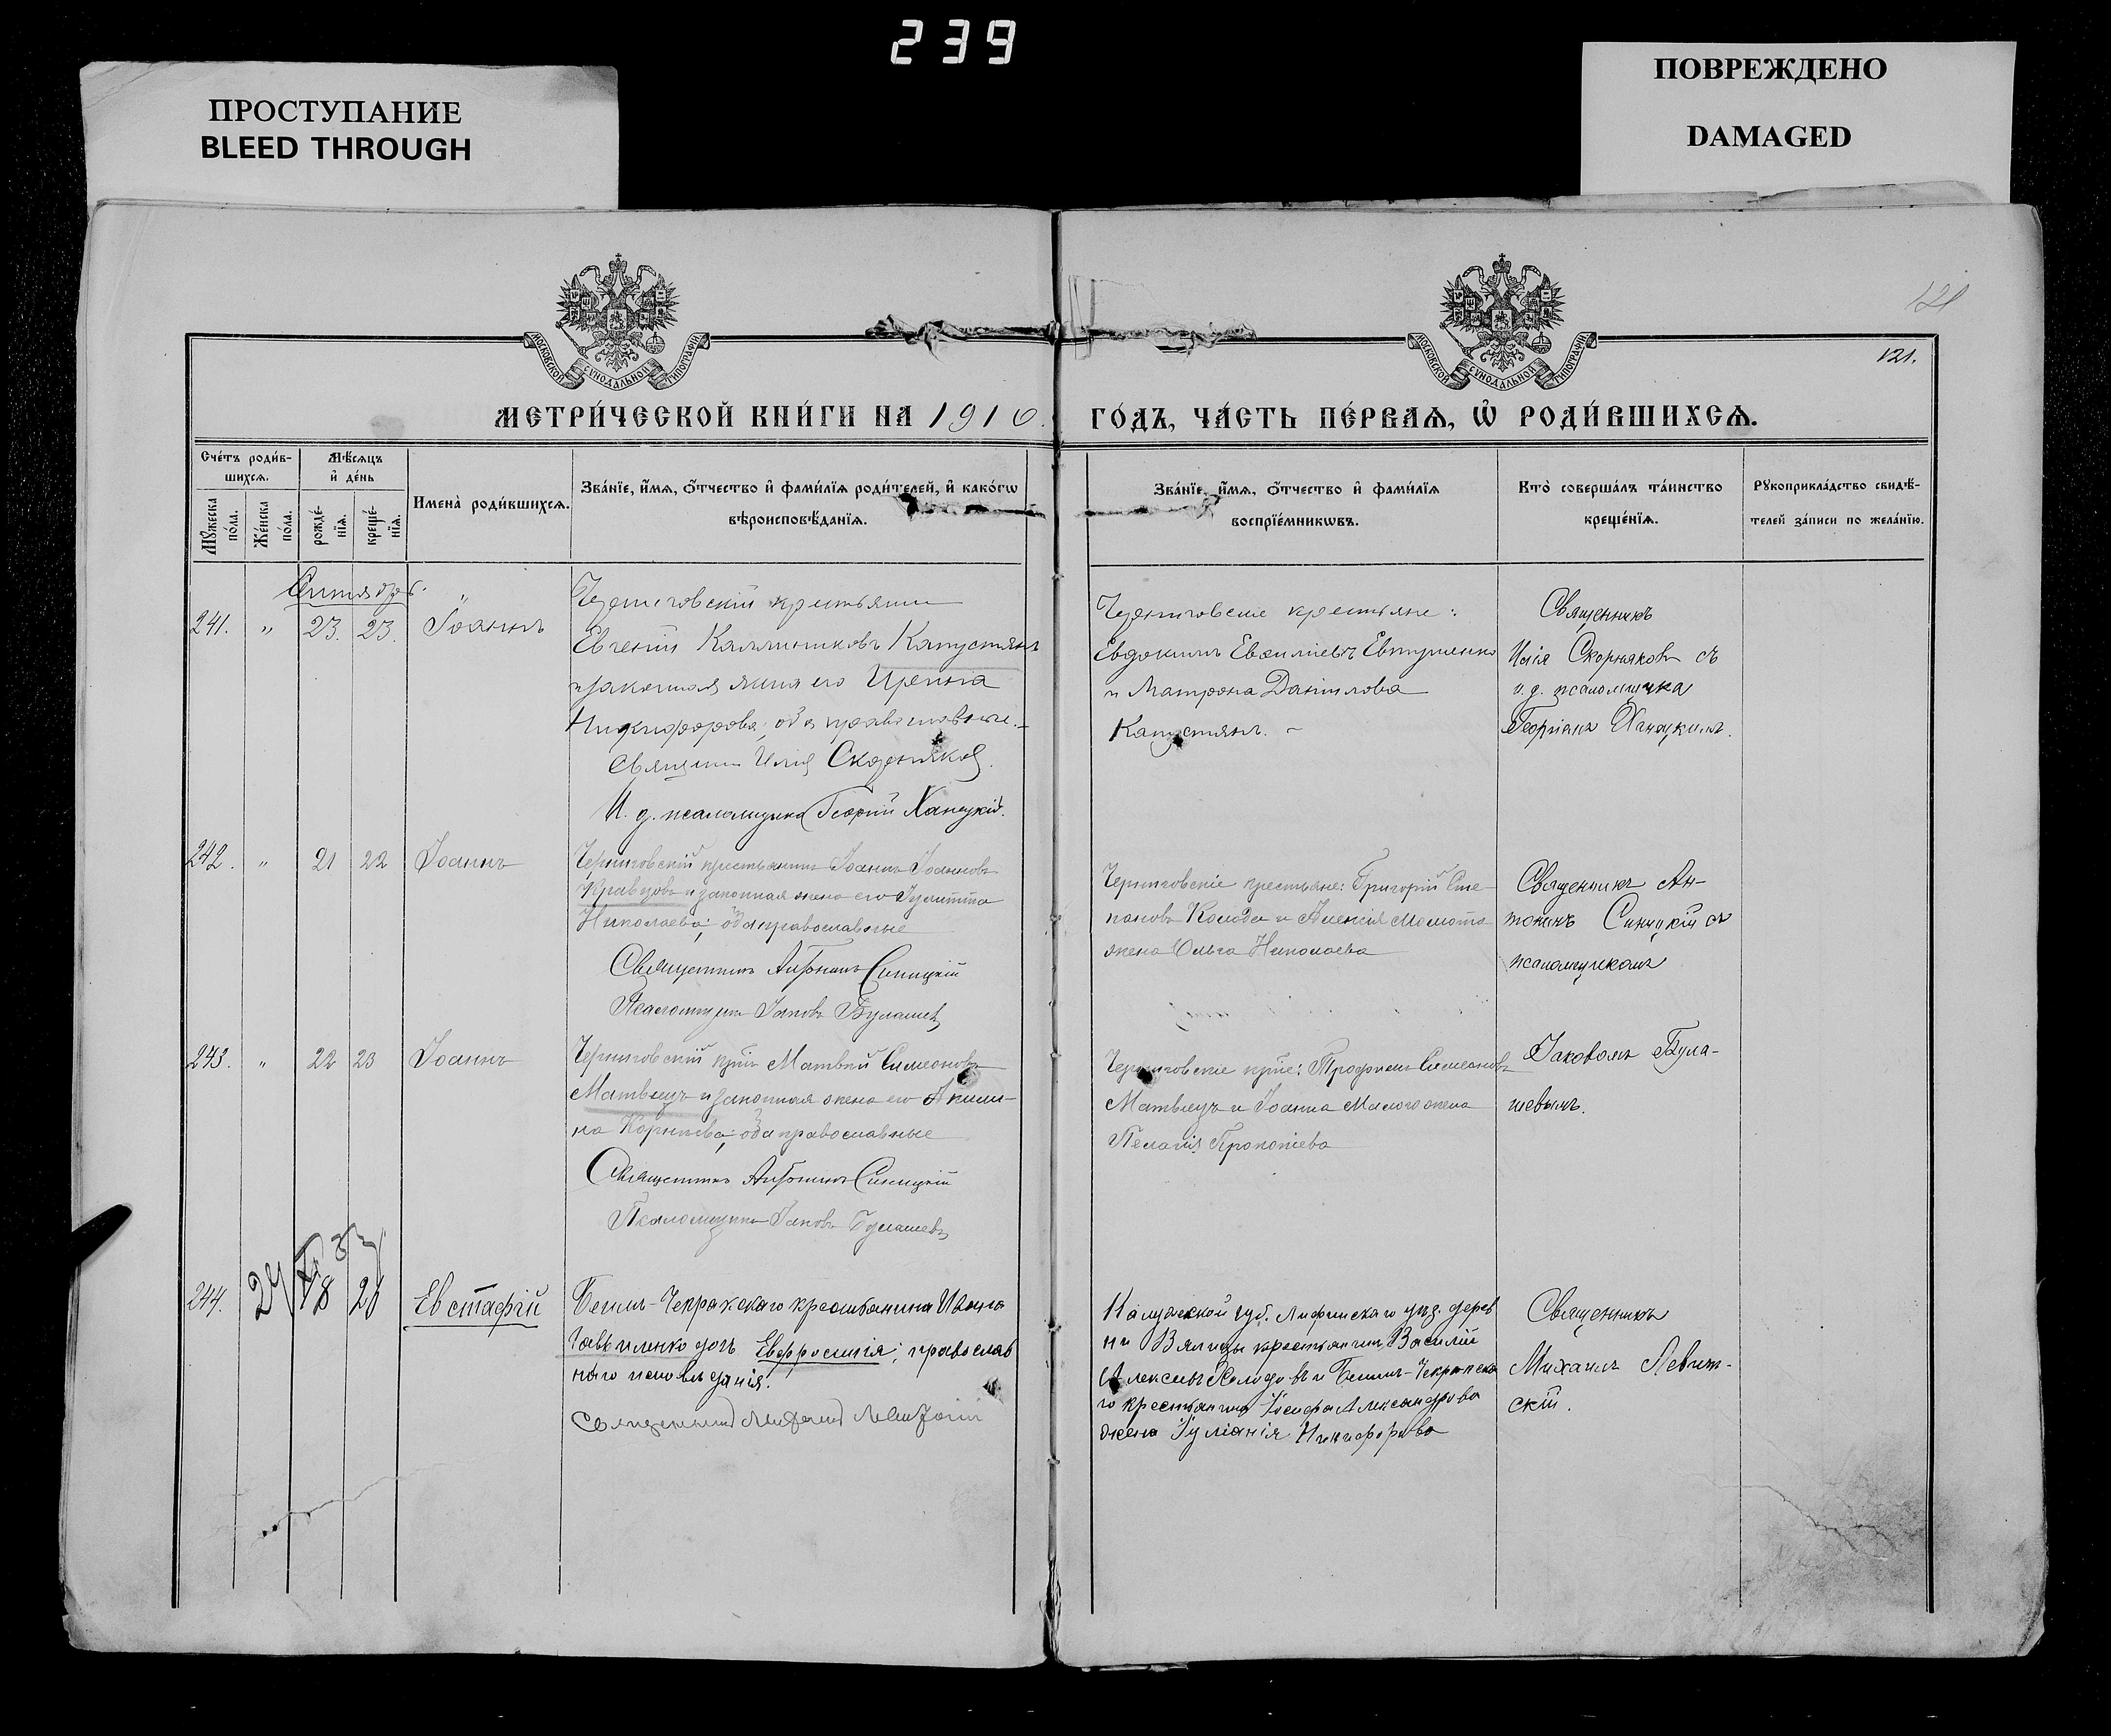 239
ПРОСТУПАНИЕ
BLEED THROUGH
ПОВРЕЖДЕНО
DAMAGED
МОСКОВСКОЙ СѴНОДАЛЬНОЙ ТИПОГРАФІИ
МОСКОВСКОЙ СѴНОДАЛЬНОЙ ТИПОГРАФІИ
121
121.
МЕТРИ́ЧЕСКОЙ КНИ́ГИ НА 1910.
ГО́ДЪ, ЧА́СТЬ ПЕ́РВАѦ, Ѡ҆ РОДИ́ВШИХСѦ.
Сче́тъ роди́в-
шихсѧ.
Мѣ́сѧцъ
и҆ де́нь
Мꙋ́жеска по́ла.
Же́нска по́ла.
рожде́-нїѧ.
креще́-нїѧ.
Имена̀ роди́вшихсѧ.
Зва́нїе, и҆́мѧ, ѻ҆́тчество и҆ фами́лїѧ роди́телей, и҆ како́гѡ
вѣроисповѣ́данїѧ.
Зва́нїе, и҆́мѧ, ѻ҆́тчество и҆ фами́лїѧ
воспрїе́мникѡвъ.
Кто̀ соверша́лъ та́инство
креще́нїѧ.
Рꙋкоприкла́дство свидѣ́-
телей за́писи по жела́нїю.
241. " 23. 23. Іоаннъ
Черниговскій крестьянин
Евгеній Каллиниковъ Капустянъ
и законная жена его Ирина
Никифорова, оба православные.
Священник Илия Скорняков.
И. д. псаломщика Георгий Ханацкій.
Черниговскіе крестьяне:
Евдокимъ Евтушенко
и Матрона Даніилова
Капустянъ.
Священникъ
Илія Скорняков съ
и. д. псаломщика
Георгіемъ Ханацкимъ.
242. " 21 22 Іоаннъ
Черниговскій крестьянинъ Іоаннъ Іоанновъ
Кравцовъ и законная жена его Іулитта
Николаева; оба православные
Священникъ Антонинъ Синицкій
Псаломщикъ Іаковъ Булашевъ
Черниговскіе крестьяне: Григорій Сте-
пановъ Колода и Алексія Момота
жена Ольга Николаева
Священникъ Ан-
тонинъ Синицкій съ
псаломщикомъ
Іаковомъ Була-
шевымъ.
243. " 22 23 Іоаннъ
Черниговскій кр-нъ Матвѣй Симеоновъ
Матвіецъ и законная жена его Акили-
на Корнѣева; оба православные
Священникъ Антонинъ Синицкій
Псаломщикъ Іаковъ Булашевъ
Черниговскіе кр-не: Трофимъ Симеоновъ
Матвіецъ и Іоанна Малого жена
Пелагія Прокопіева
244. 18 Евстафій
Бешъ-Чекракскаго крестьянина Ивана
Гавриленко дочь Евфросинія; православ
наго исповѣданія.
Священникъ Михаилъ
Калужской губ. Лифинскаго уѣз. дерев
ни крестьянин Василій
Алексѣевъ и Бешъ-Чекракска
го крестьянина Іосифа Александрова
жена Іуліанія Никифорова
Священникъ
Михаилъ Левит-
скій.